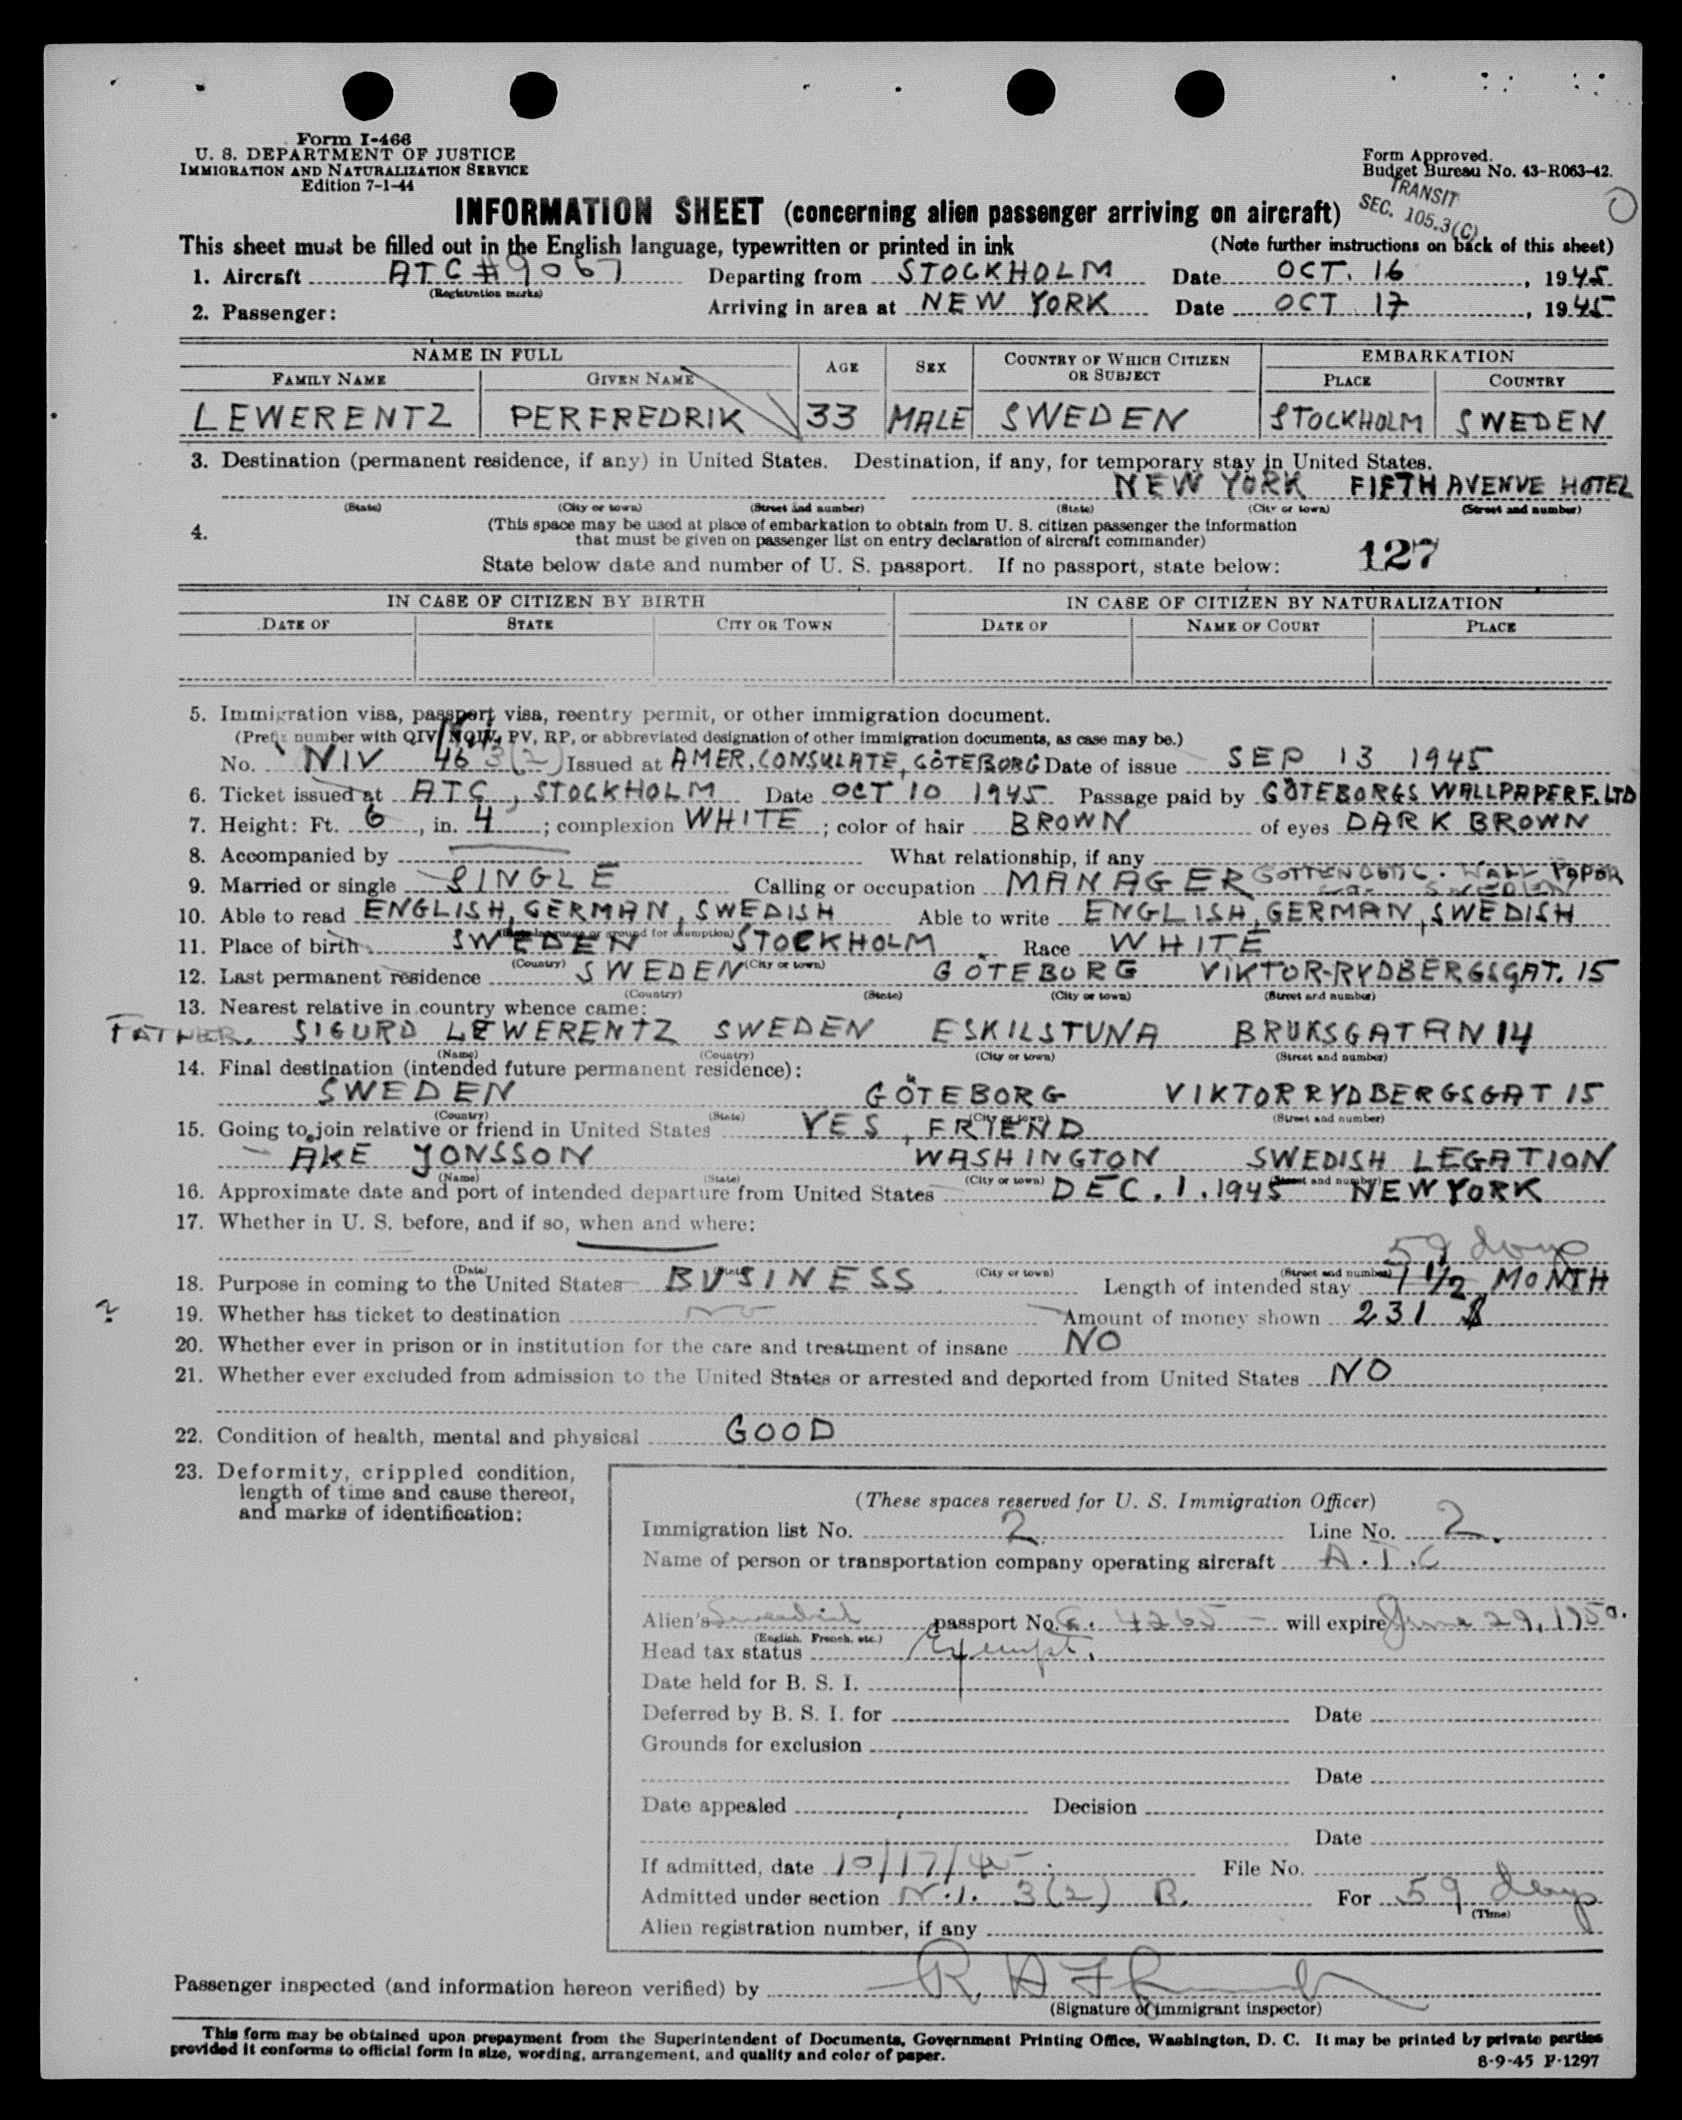 Form I-466
U. S. DEPARTMENT OF JUSTICE
IMMIGRATION AND NATURALIZATION SERVICE
Edition 7-1-44
Form Approved.
Budget Bureau No. 43-R063-42.
TRANSIT
SEC. 105.3(C)
INFORMATION SHEET (concerning alien passenger arriving on aircraft)
This sheet must be filled out in the English language, typewritten or printed in ink (Note further instructions on back of this sheet)
1. Aircraft ATC#9067 Departing from STOCKHOLM Date OCT. 16, 1945
(Registration marks)
2. Passenger: Arriving in area at NEW YORK Date OCT 17, 1945
NAME IN FULL AGE SEX COUNTRY OF WHICH CITIZEN OR SUBJECT EMBARKATION
FAMILY NAME GIVEN NAME PLACE COUNTRY
LEWERENTZ PERFREDRIK 33 MALE SWEDEN STOCKHOLM SWEDEN
3. Destination (permanent residence, if any) in United States. Destination, if any, for temporary stay in United States.
NEW YORK FIFTH AVENUE HOTEL
(State) (City or town) (Street and number) (State) (City or town) (Street and number)
4. (This space may be used at place of embarkation to obtain from U. S. citizen passenger the information
that must be given on passenger list on entry declaration of aircraft commander)
State below date and number of U. S. passport. If no passport, state below: 127
IN CASE OF CITIZEN BY BIRTH IN CASE OF CITIZEN BY NATURALIZATION
DATE OF STATE CITY OR TOWN DATE OF NAME OF COURT PLACE
5. Immigration visa, passport visa, reentry permit, or other immigration document.
(Prefix number with QIV, NQIV, PV, RP, or abbreviated designation of other immigration documents, as case may be.)
No. NIV 46 3(2) Issued at AMER. CONSULATE, GÖTEBORG Date of issue SEP 13 1945
6. Ticket issued at ATC, STOCKHOLM Date OCT 10 1945 Passage paid by GÖTEBORGS WALLPAPERF. LTD
7. Height: Ft. 6, in. 4; complexion WHITE; color of hair BROWN of eyes DARK BROWN
8. Accompanied by What relationship, if any
9. Married or single SINGLE Calling or occupation MANAGER WALL PAPOR
SWEDEN
10. Able to read ENGLISH, GERMAN, SWEDISH Able to write ENGLISH, GERMAN, SWEDISH
(State language or ground for exemption)
11. Place of birth SWEDEN STOCKHOLM Race WHITE
(Country) (City or town)
12. Last permanent residence SWEDEN GÖTEBORG VIKTOR-RYDBERGSGAT. 15
(Country) (State) (City or town) (Street and number)
13. Nearest relative in country whence came:
FATHER. SIGURD LEWERENTZ SWEDEN ESKILSTUNA BRUKSGATAN 14
(Name) (Country) (City or town) (Street and number)
14. Final destination (intended future permanent residence):
SWEDEN GÖTEBORG VIKTOR RYDBERGSGAT 15
(Country) (State) (City or town) (Street and number)
15. Going to join relative or friend in United States YES, FRIEND
AKE JONSSON WASHINGTON SWEDISH LEGATION
(Name) (State) (City or town) (Street and number)
16. Approximate date and port of intended departure from United States DEC. 1. 1945 NEW YORK
17. Whether in U. S. before, and if so, when and where:
59 days
(Date) (State) (City or town) (Street and number)
18. Purpose in coming to the United States BUSINESS Length of intended stay 1 1/2 MONTH
? 19. Whether has ticket to destination No Amount of money shown 231 $
20. Whether ever in prison or in institution for the care and treatment of insane NO
21. Whether ever excluded from admission to the United States or arrested and deported from United States NO
22. Condition of health, mental and physical GOOD
23. Deformity, crippled condition,
length of time and cause thereof,
and marks of identification:
(These spaces reserved for U. S. Immigration Officer)
Immigration list No. 2. Line No. 2.
Name of person or transportation company operating aircraft A.T.C
Alien's Swedish passport No. G. 4265 will expire June 29, 1950.
(English, French, etc.)
Head tax status Exempt.
Date held for B. S. I.
Deferred by B. S. I. for Date
Grounds for exclusion
Date
Date appealed Decision
Date
If admitted, date 10/17/45 File No.
Admitted under section N.I. 3(2) B. For 59 days
(Time)
Alien registration number, if any
Passenger inspected (and information hereon verified) by
(Signature of immigrant inspector)
This form may be obtained upon prepayment from the Superintendent of Documents, Government Printing Office, Washington, D. C. It may be printed by private parties
provided it conforms to official form in size, wording, arrangement, and quality and color of paper.
8-9-45 F-1297